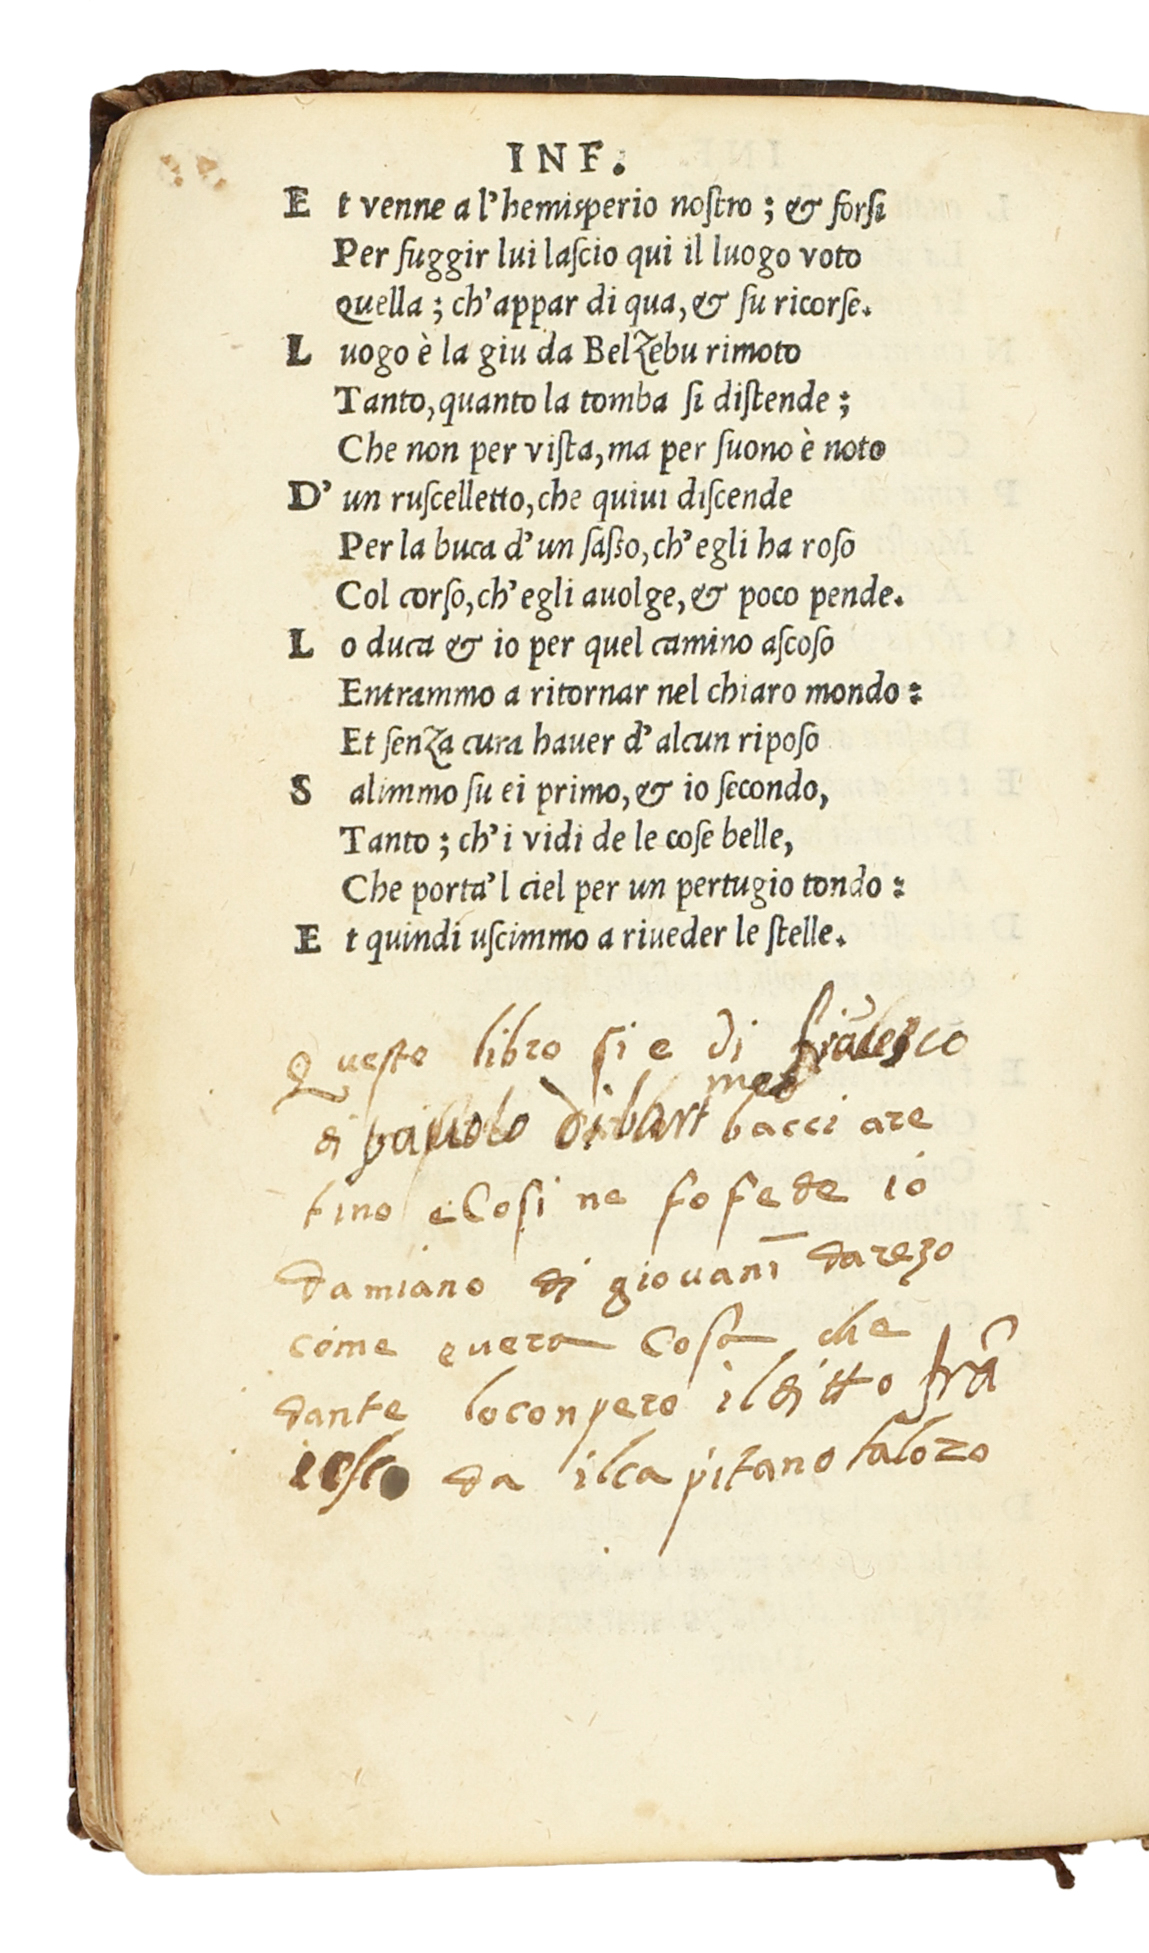 INF.
Et venne a l'hemisperio nostro; & forsi
Per fuggir lui lascio qui il luogo voto
Quella; ch'appar di qua, & su ricorse.
Luogo è la giu da Belzebu rimoto
Tanto, quanto la tomba si distende;
Che non per vista, ma per suono è noto
D'un ruscelletto, che quiui discende
Per la buca d'un sasso, ch'egli ha roso
Col corso, ch'egli auolge, & poco pende.
Lo duca & io per quel camino ascoso
Entrammo a ritornar nel chiaro mondo:
Et senza cura hauer d'alcun riposo
Salimmo su ei primo, & io secondo,
Tanto; ch'i vidi de le cose belle,
Che porta'l ciel per un pertugio tondo:
Et quindi uscimmo a riueder le stelle.
Questo libro si e di
di bacci are
tino e Cosi ne fo fede io
damiano di giouanī darezo
come e uera Cosa che
dante lo conpero il ditto frā
iesco da il capitano